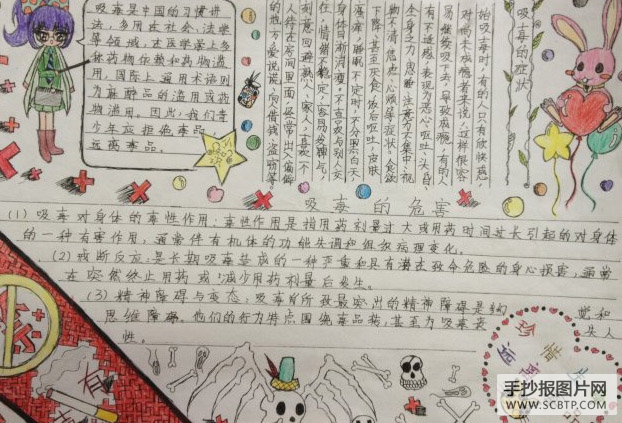 吸毒是中国的习惯讲
法，多用在社会、法学
等领域，在医学界上多
称药物依赖和药物滥
用，国际上通用术语则
为麻醉品的滥用或药
物滥用。因此：我们青
少年应拒绝毒品，
远离毒品。
吸毒的症状
始吸毒时，有的人只有欣快感，
对尚未成瘾者来说，这样很容
易继续吸下去，导致成瘾，有的人
有不适感，表现为恶心、呕吐、头昏、
全身乏力、思睡、注意力不集中、视
物不清、焦虑、心烦等症状。食欲
下降，甚至厌食，饭后呕吐，皮肤
瘙痒，睡眠不定时，不分黑白天，
身体日渐消瘦。不喜欢与别人交
往，情绪不稳定，容易发脾气，
刻意回避熟人、家人，喜欢一个
人待在房间里面，经常出入偏僻
的地方，爱说谎，向借钱、盗窃等。
吸毒的危害
(1) 吸毒对身体的毒性作用：毒性作用是指用药剂量过大或用药时间过长引起的对身体
的一种有害作用，通常伴有机体的功能失调和组织病理变化。
(2) 戒断反应：是长期吸毒造成的一种严重和具有潜在致命危险的身心损害，通常
在突然终止用药或减少用药剂量后发生。
(3) 精神障碍与变态：吸毒所致最突出的精神障碍是幻觉和
思维障碍。他们的行为特点围绕毒品转，甚至为吸毒丧失人
性。
珍
青
手抄报图片网
WWW.SCBTP.COM